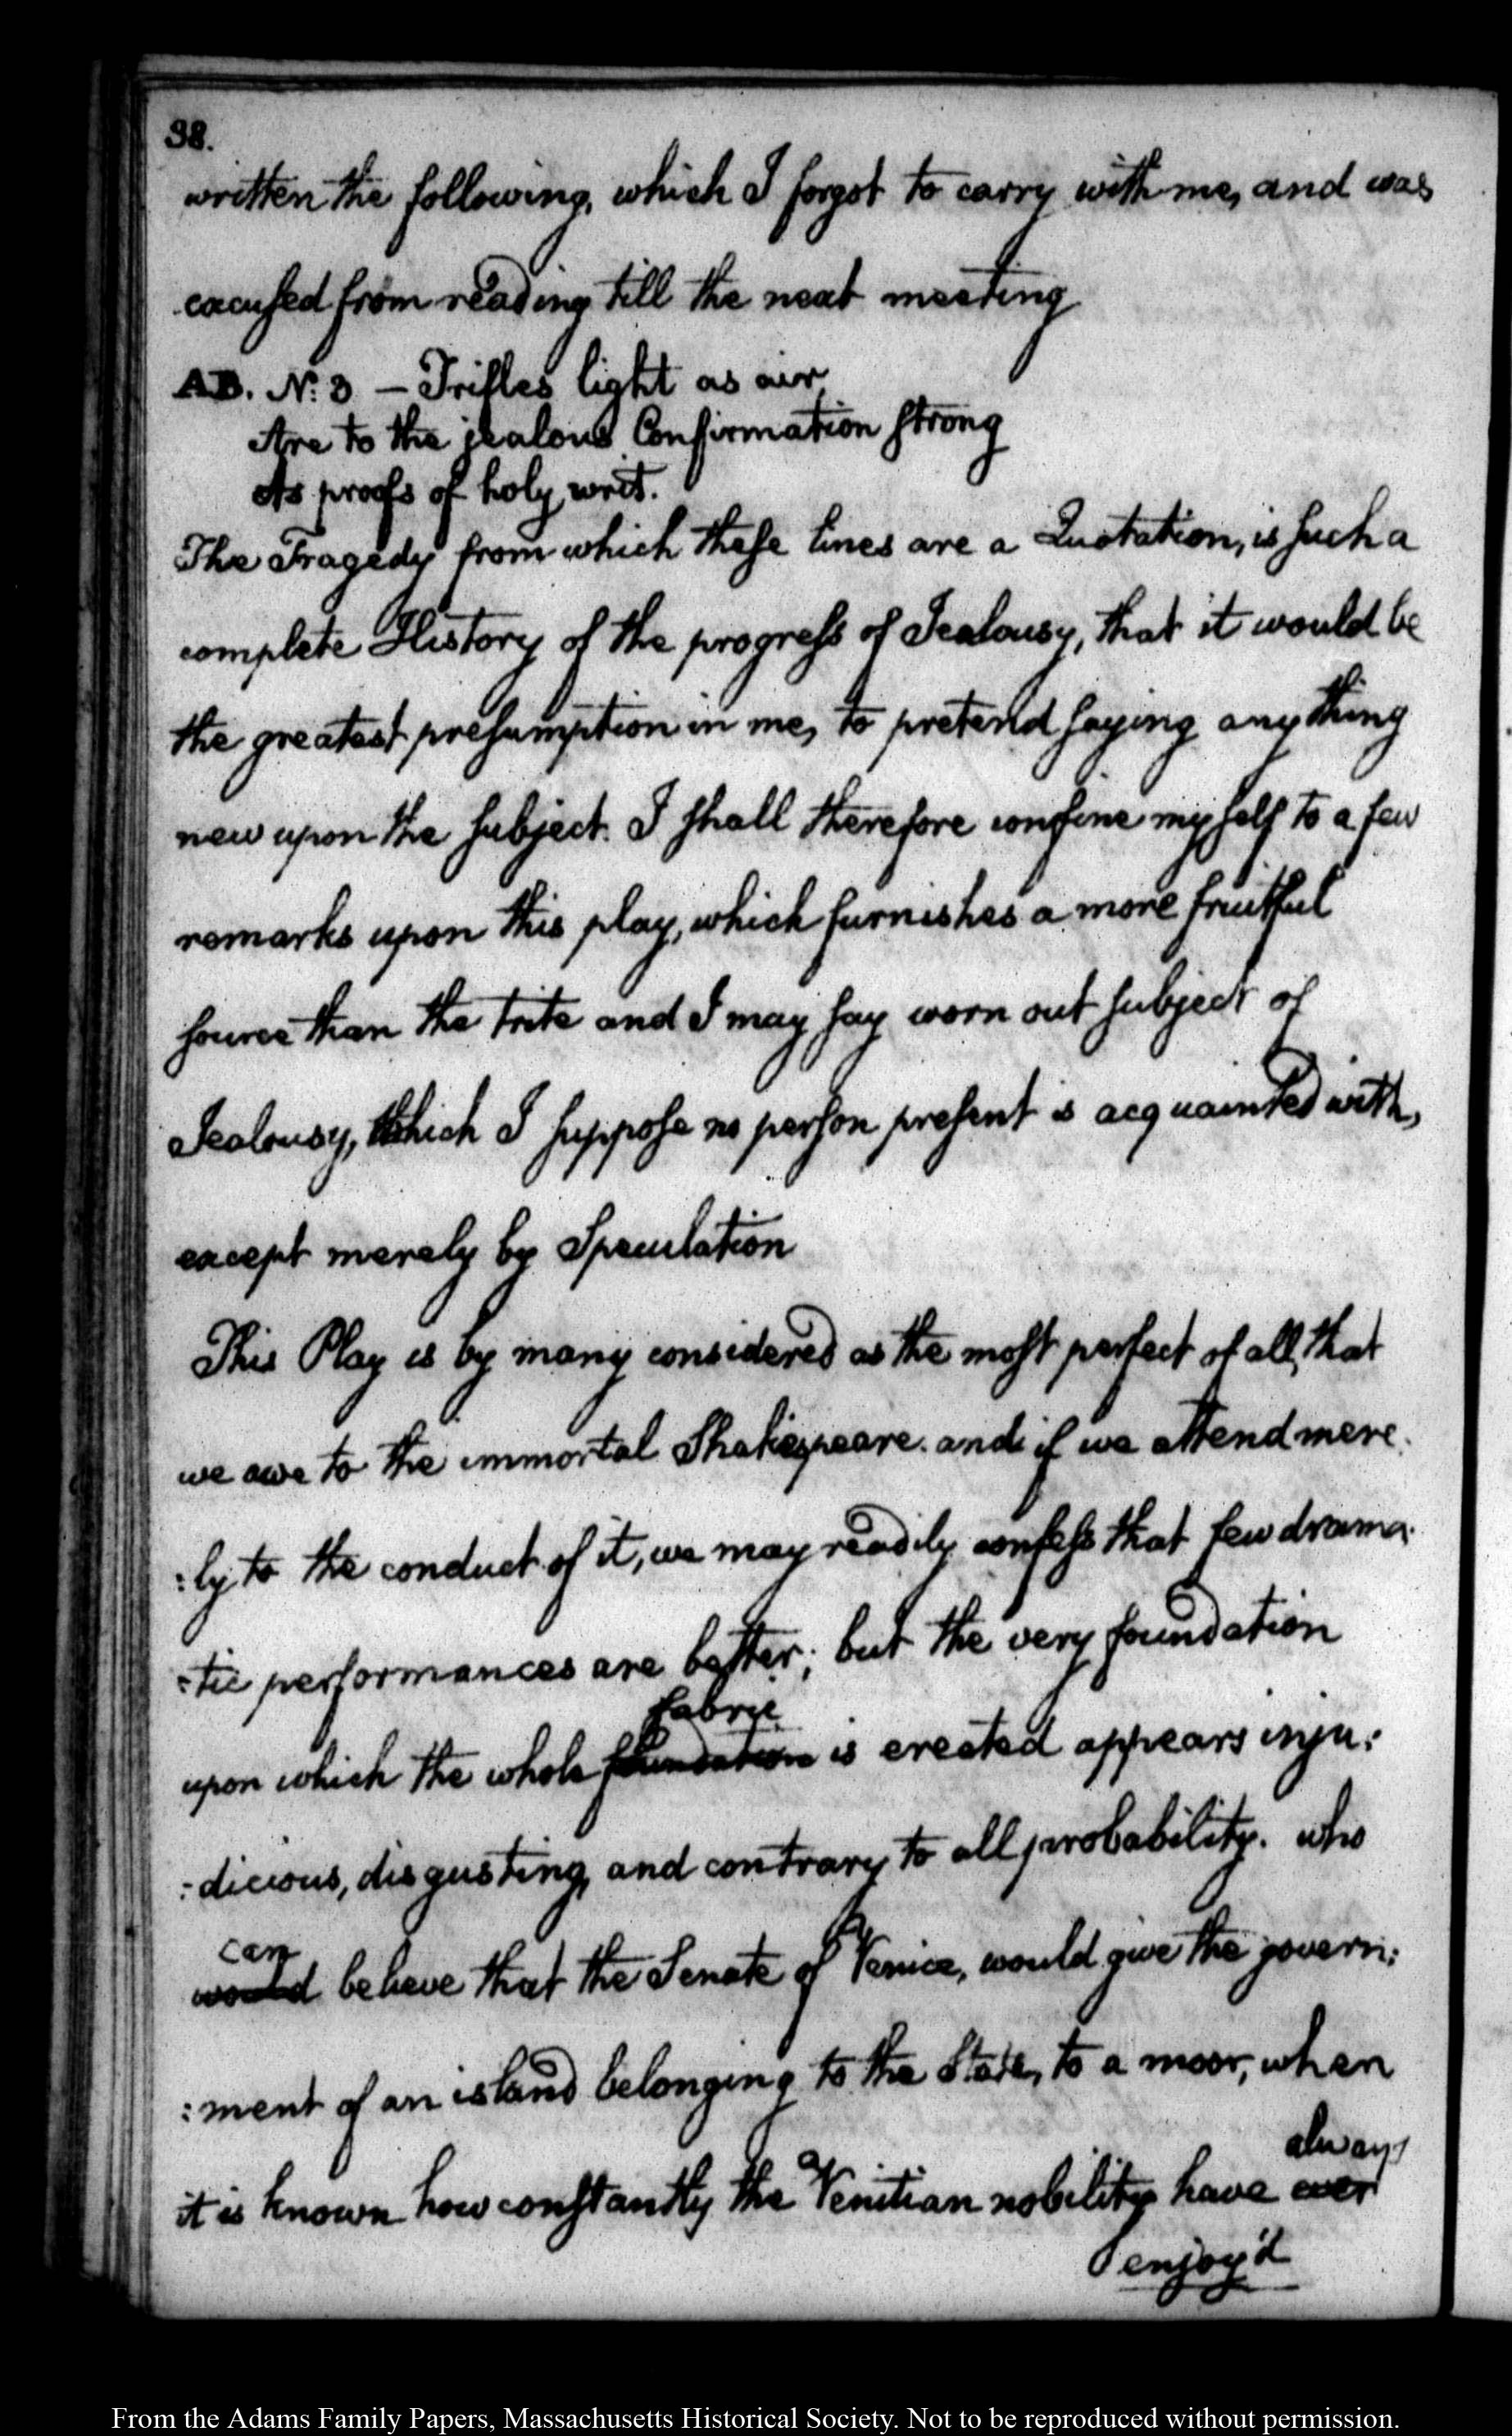 38.
written the following, which I forgot to carry with me, and was
excused from reading till the next meeting
AB. No: 3 — Trifles light as air
Are to the jealous Confirmation strong
As proofs of holy writ.
The Tragedy from which these lines are a Quotation, is such a
complete History of the progress of Jealousy, that it would be
the greatest presumption in me, to pretend saying any thing
new upon the subject. I shall therefore confine myself to a few
remarks upon this play, which furnishes a more fruitful
source than the trite and I may say worn out subject of
Jealousy, which I suppose no person present is acquainted with,
except merely by Speculation
This Play is by many considered as the most perfect of all, that
we owe to the immortal Shakespeare. and if we attend mere:
:ly to the conduct of it, we may readily confess that few drama:
:tic performances are better; but the very foundation
fabric
upon which the whole foundation is erected appears inju:
:dicious, disgusting, and contrary to all probability. who
can
would believe that the Senate of Venice, would give the govern:
:ment of an island belonging to the State, to a moor, when
always
it is known how constantly the Venitian nobility have ever
enjoy'd
From the Adams Family Papers, Massachusetts Historical Society. Not to be reproduced without permission.